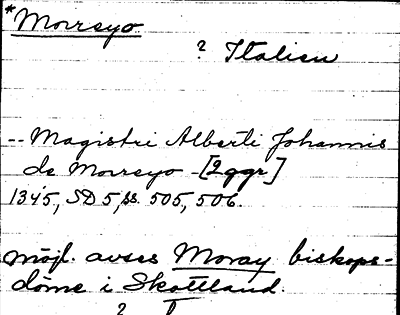 *Morreyo
? Italien
-- Magistri Alberti Johannis
de Morreyo -[2ggr]
1345, SD 5, ss. 505, 506.
möjl. avses Moray biskops-
döme i Skottland.
?